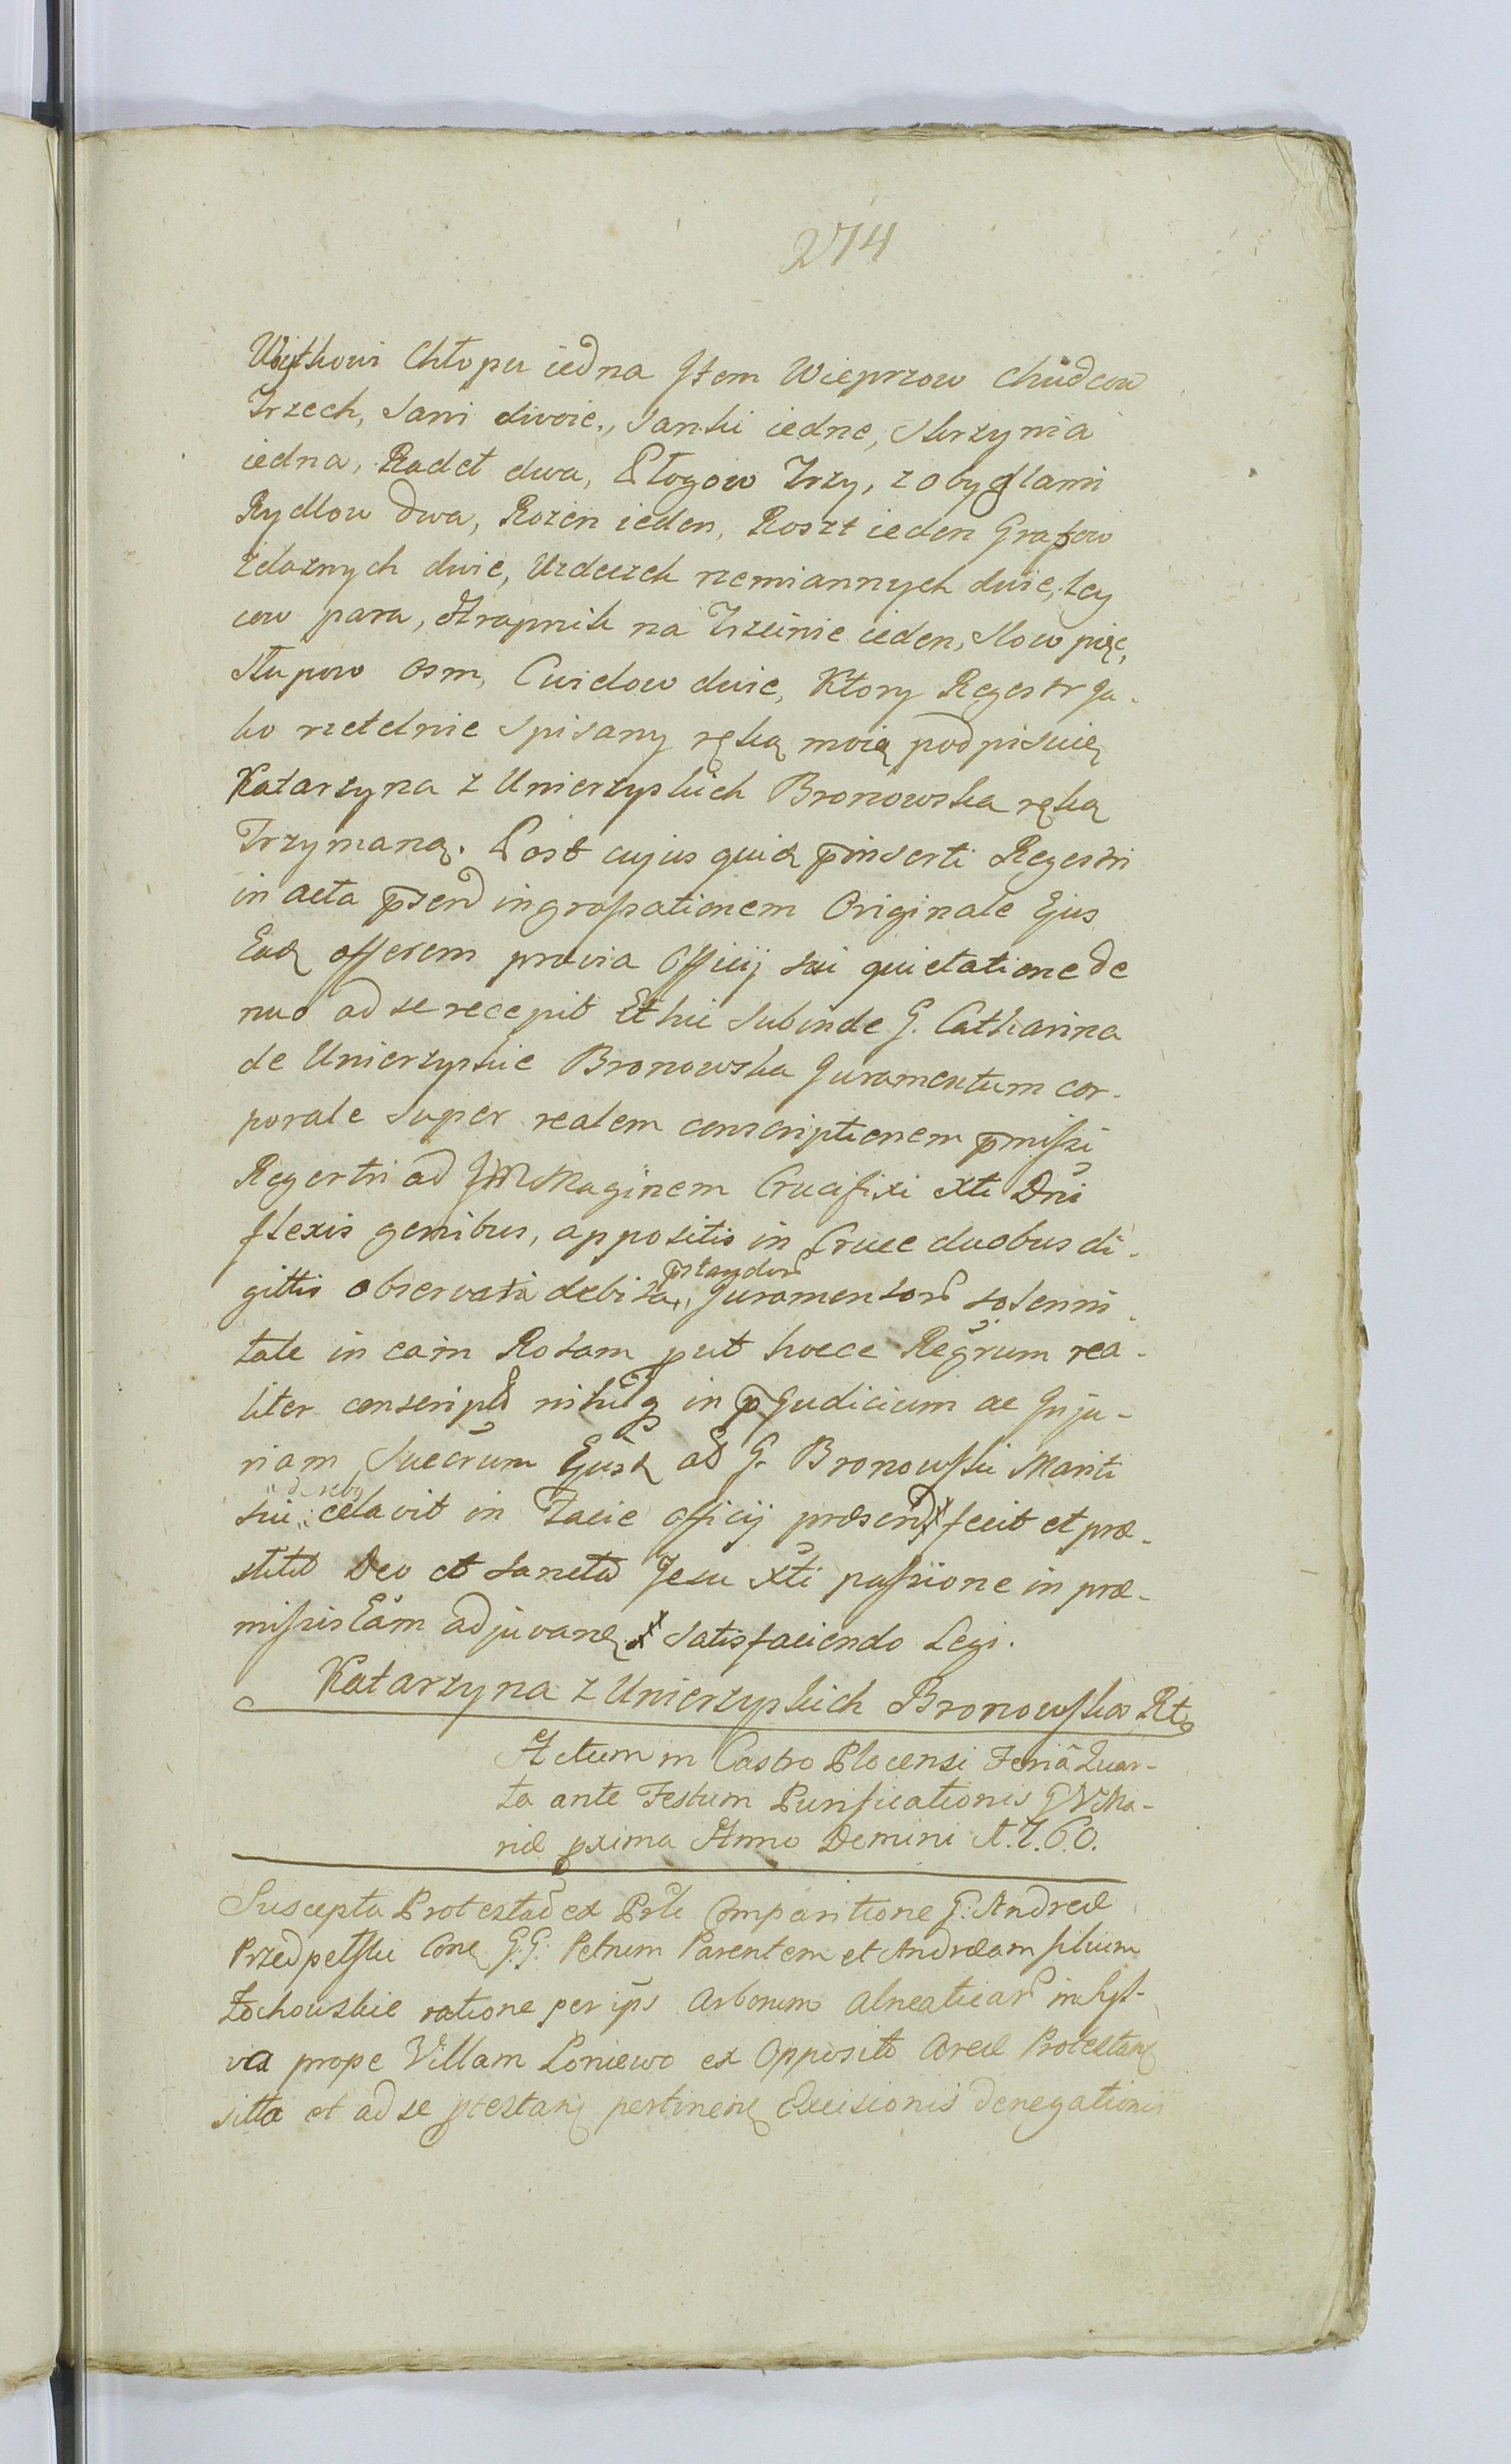 274
Woytkowi Chłopu iedna Item Wieprzow chudcow
Trzech, Sani dwoie, Sanki iedne, Skrzynia
iedna, Radeł dwa, Płogow Trzy, z obydlami
Rydlow dwa, Rozen ieden, Roszt ieden Grapow
żelaznych dwie, Uzdeczek rzemiannych dwie, Ley
cow para, Hrapnik na Trzcinie ieden, Slow pięc,
słupow osm, Cwielow dwie, Ktory Regestr Ja-
ko rzetelnie spisany ręką moią podpisuię
Katarzyna z Unierzyskich Bronowska ręką
Trzymaną. Post cujus quid p̄inserti Regestri
in acta p̄send ingrossationem Originale Ejus
Ead offerem prævia Officij sui quietatione de
nuo ad se recepit Et hic Subinde G. Catharina
de Unierzyskie Bronowska Juramentum cor-
porale super realem conscriptionem p̄missi
Regestri ad Imaginem Crucifixi Xti Dni
flexis genibus, appositis in Cruce duobus di-
gittis observatà debita p̄standor Juramentor solenni-
tate in eam Rotam put hocce Regrum rea-
liter conscripsit nihilq in p̄judicium ac Inju-
riam Sucrum Ejusd ad G. Bronowski Mariti
sui de rebq celavit in facie officij præsend fecit et præ-
stitit Deo et sancta Jesu Xti passione in præ-
missis Eam adjuvand satisfaciendo Legi.
Katarzyna z Unierzyskich Bronowska Rt
Actum in Castro Plocensi Feriâ Quar-
ta ante Festum Purificationis B V Ma-
riæ pxima Anno Domini 1.7.6.0.
Suscepta Protestad ex Prti Comparitione G. Andreæ
Przedpełski Cone G.G. Petrum Parentem et Andræam filium
Łochowskie ratione per ips Arborum Alneaticar in Syl-
va prope Villam Loniewo ex Opposito Areæ Protestanę
sitta et ad se ptestanę pertinenę Excisionis denegationis